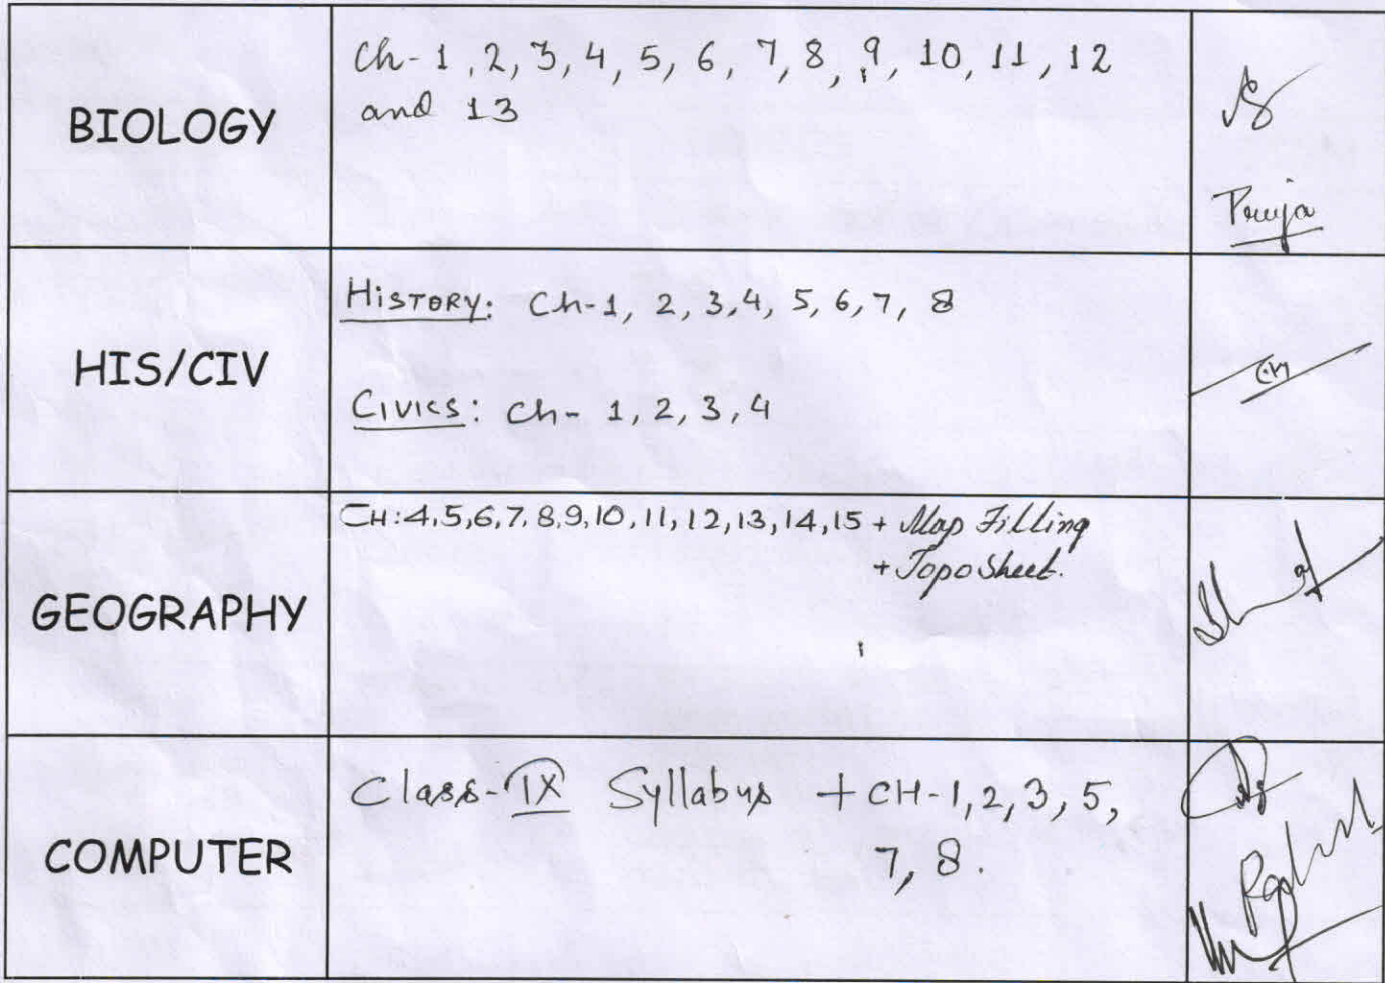 BIOLOGY
Ch- 1, 2, 3, 4, 5, 6, 7, 8, 9, 10, 11, 12
and 13
HIS/CIV
HISTORY: Ch-1, 2, 3, 4, 5, 6, 7, 8
CIVICS: Ch- 1, 2, 3, 4
GEOGRAPHY
CH:4,5,6,7,8,9,10,11,12,13,14,15 + Map Filling
+ Topo Sheet.
COMPUTER
Class-IX Syllabus + CH-1,2,3,5,
7, 8.